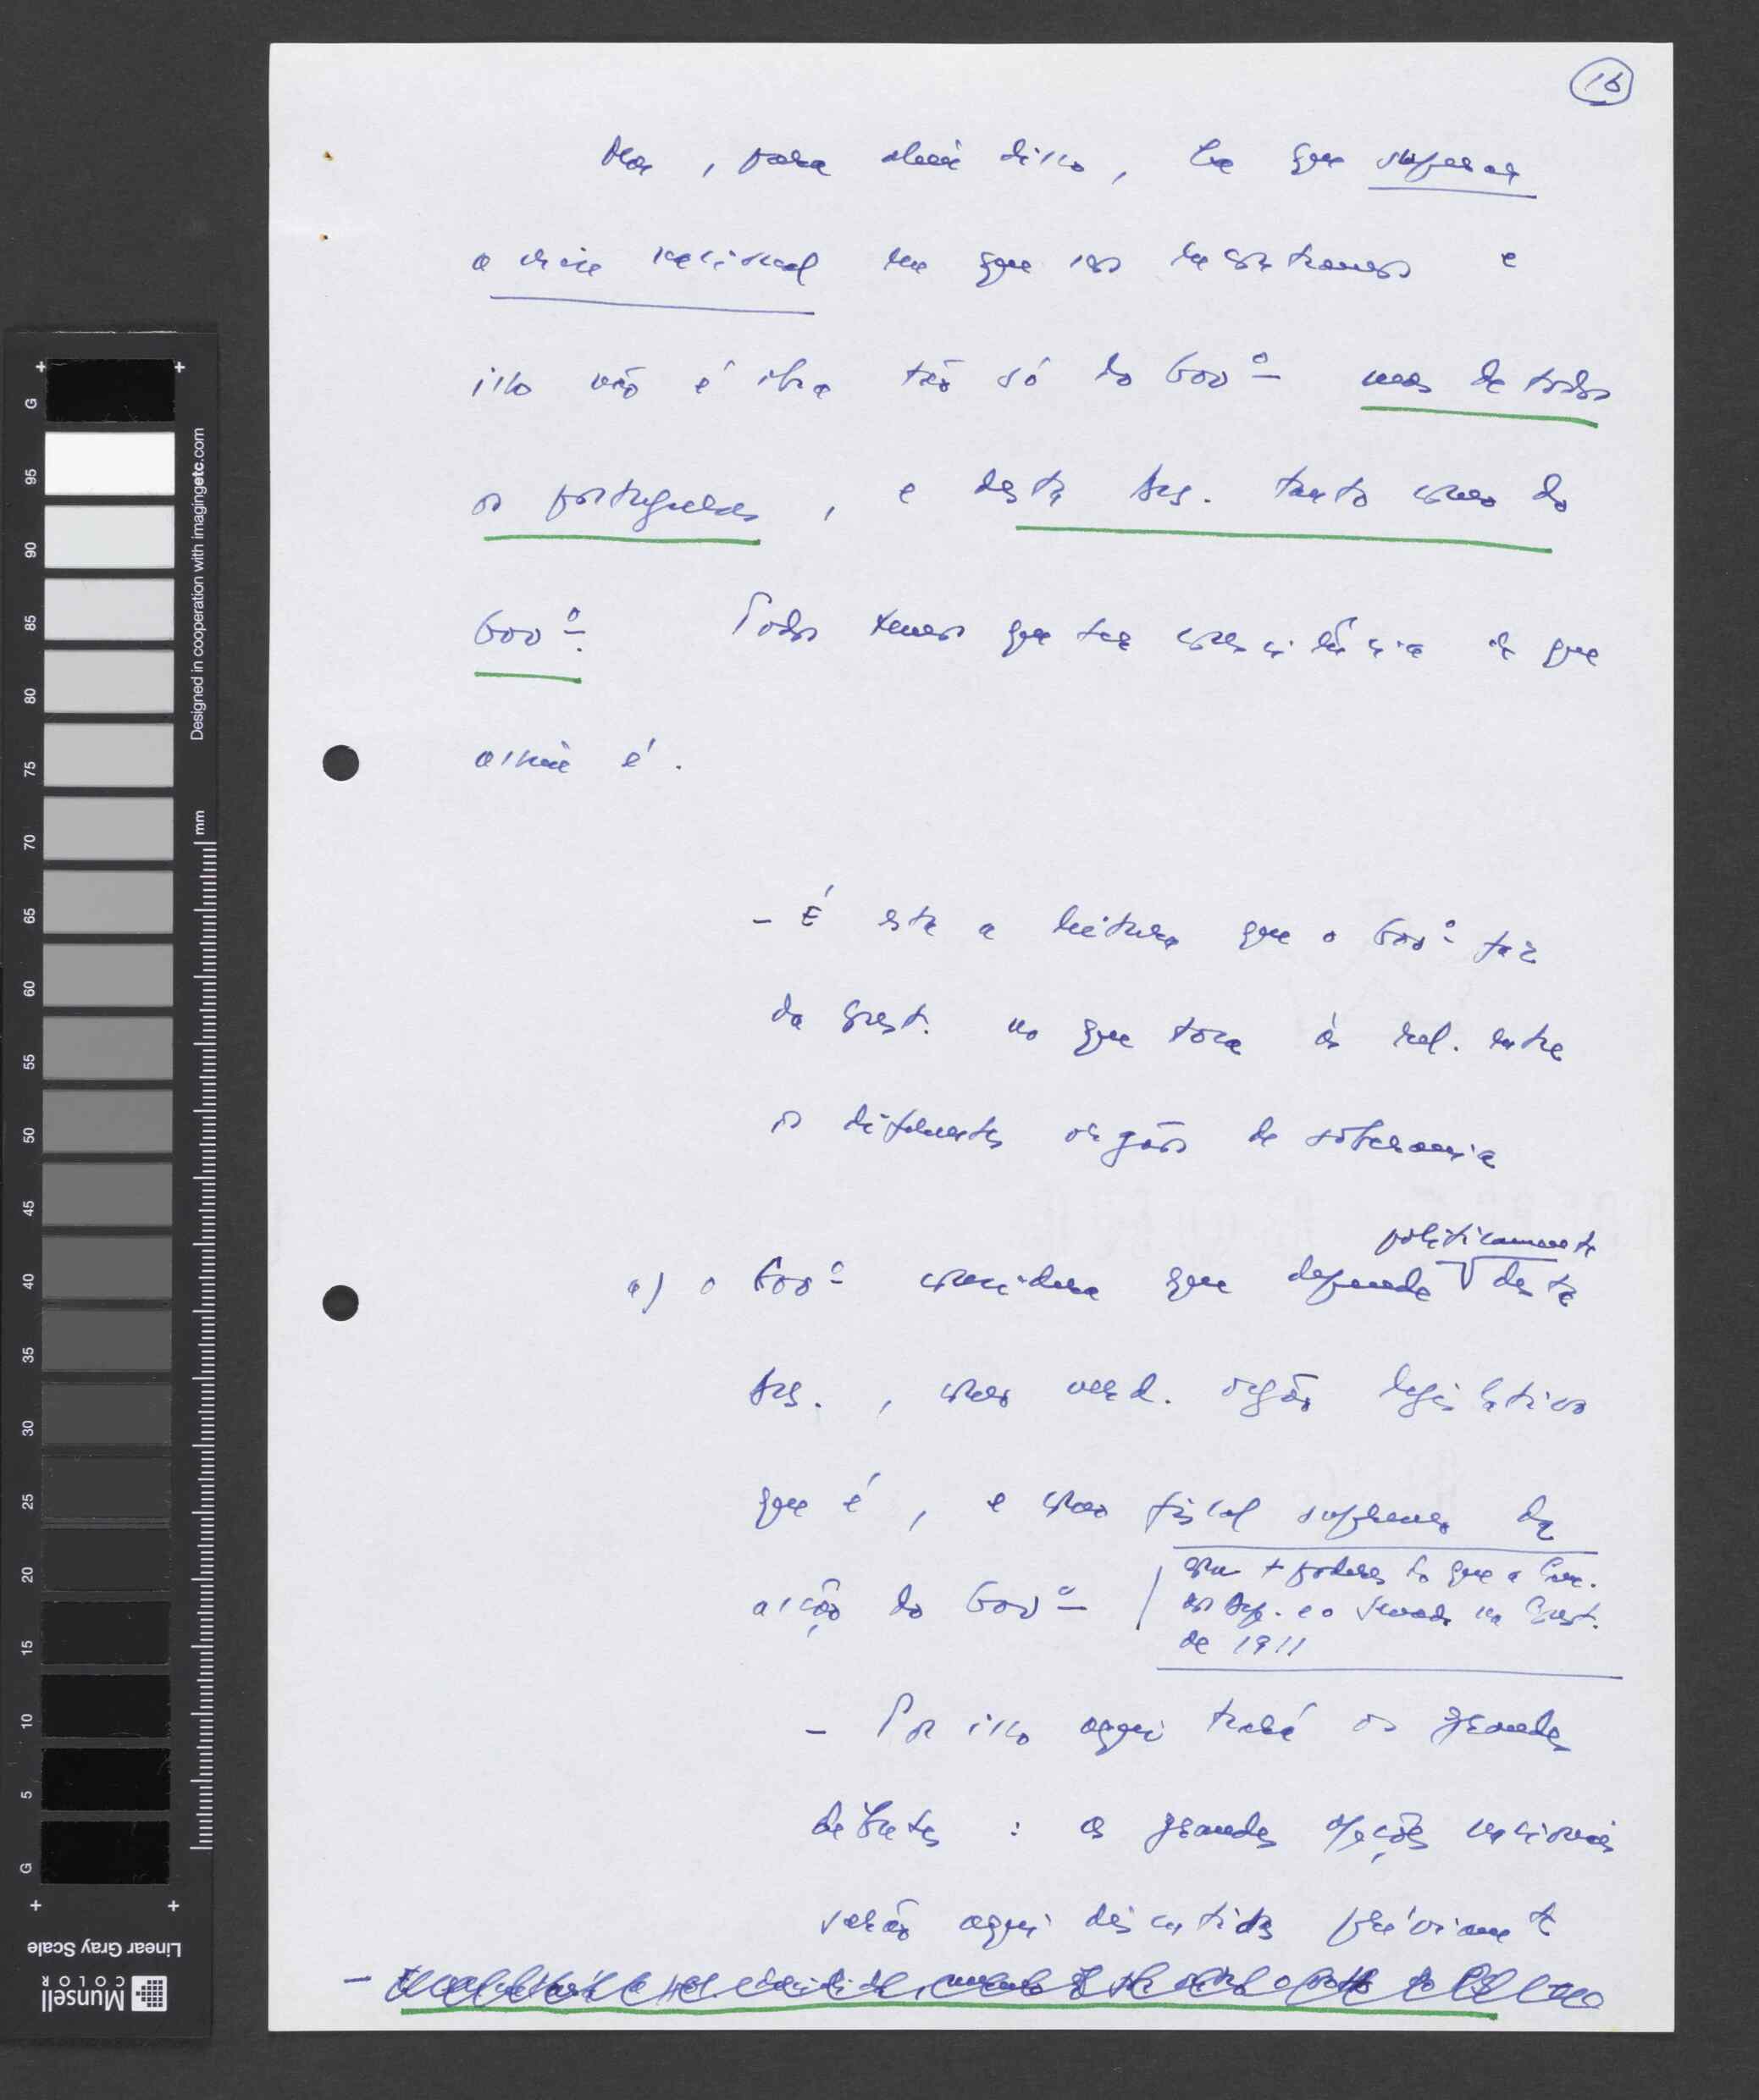 16
Mas, para além disso, há que superar
a crise nacional em que nos encontramos e
isso não é obra tão só do Govº mas de todos
os portugueses, e desta Ass. tanto como do
Govº. Todos temos que ter consciência de que
assim é.
- É esta a leitura que o Govº faz
da Const. no que toca às rel. entre
os diferentes orgãos de soberania
politicamente
a) o Govº considera que depende desta
Ass., como verd. orgão legislativo
que é, e como fiscal supremo da
acção do Govº
com + poderes do que a Câm.
dos Dep. e o Senado na Const.
de 1911
- Por isso aqui trará os grandes
debates : as grandes opções nacionais
serão aqui discutidas préviamte
-
G 5 10 15 20 25 30 35 40 45 50 55 60 65 70 75 80 85 90 95 G
mm
Designed in cooperation with imagingetc.com
Linear Gray Scale
Munsell
COLOR